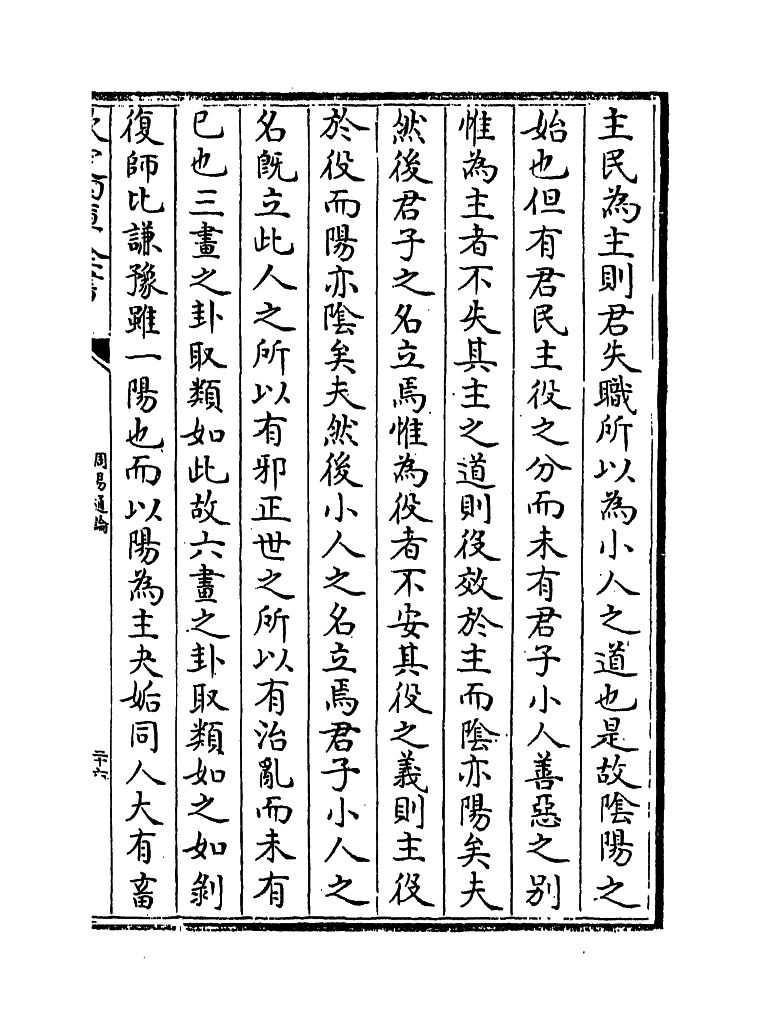 主民為主則君失職所以為小人之道也是故陰陽之
始也但有君民主役之分而未有君子小人善惡之别
惟為主者不失其主之道則役效於主而陰亦陽矣夫
然後君子之名立焉惟為役者不安其役之義則主役
於役而陽亦陰矣夫然後小人之名立焉君子小人之
名旣立此人之所以有邪正世之所以有治亂而未有
已也三畫之卦取類如此故六畫之卦取類如之如剝
復師比謙豫雖一陽也而以陽為主夬姤同人大有畜
周易通論
二十六